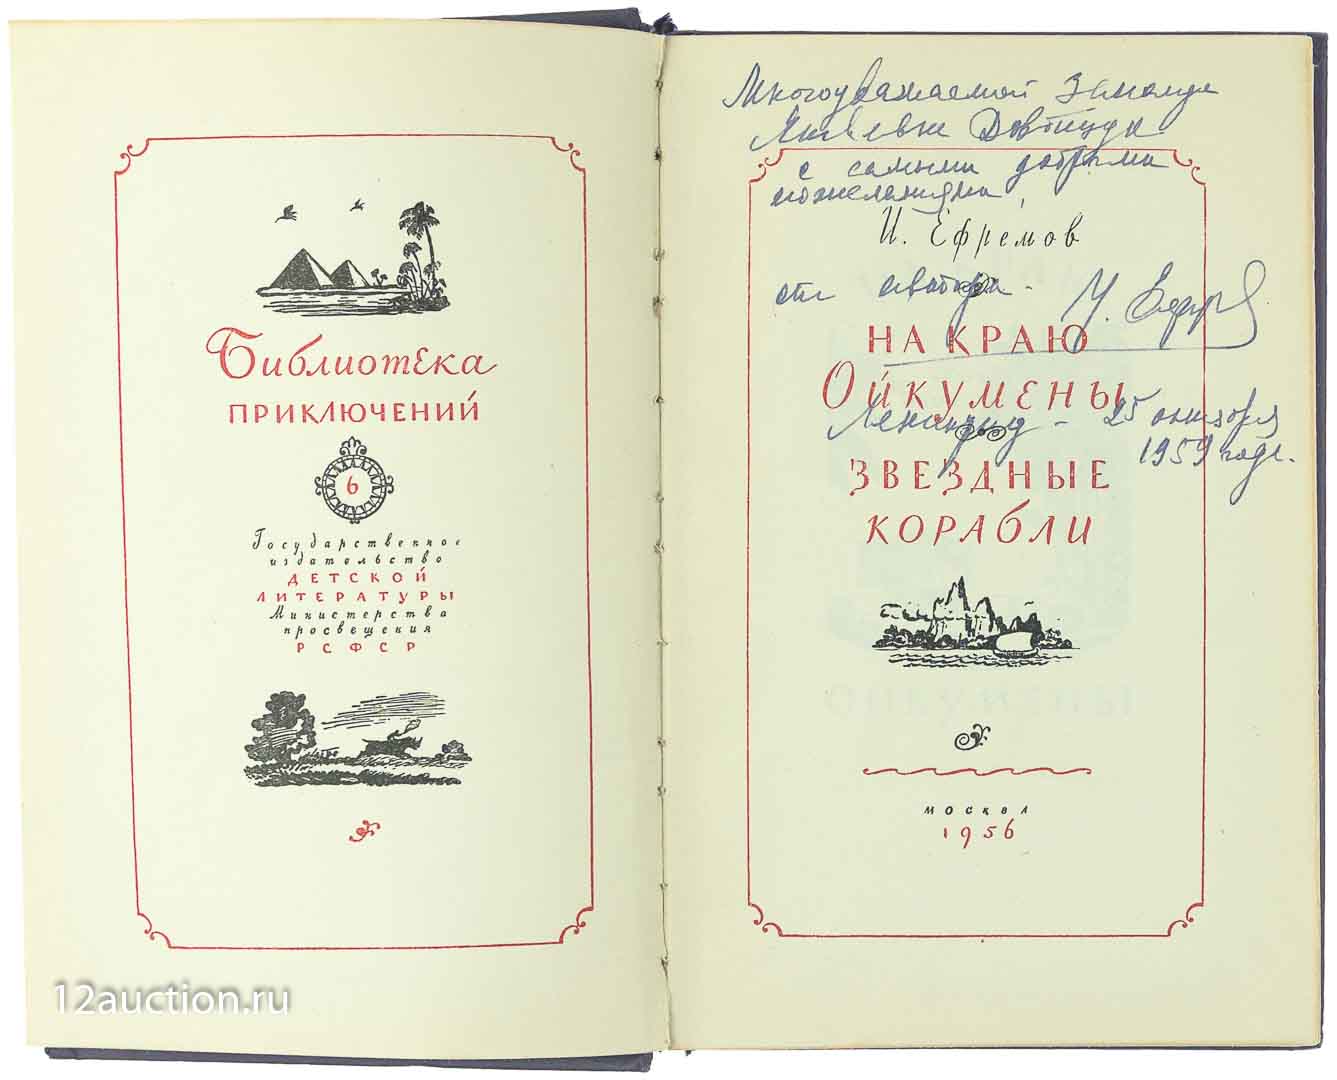 Библиотека
ПРИКЛЮЧЕНИЙ
6
Государственное
издательство
ДЕТСКОЙ
ЛИТЕРАТУРЫ
Министерства
просвещения
РСФСР
12auction.ru
Многоуважаемой
с самыми добрыми
пожеланиями
И. Ефремов
от автора.
И. Ефремов
НА КРАЮ
ОЙКУМЕНЫ
Ленинград - 25 октября
1959 года.
ЗВЕЗДНЫЕ
КОРАБЛИ
МОСКВА
1956
ОЙКУМЕНЫ